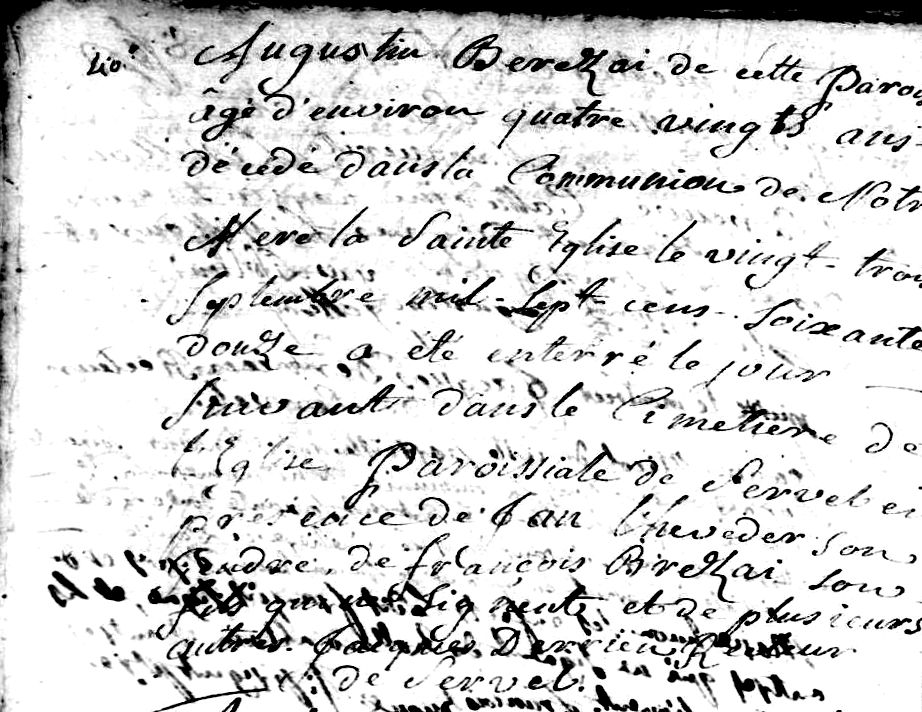 40e Augustin Berezai de cette Paroi
âgé d'environ quatre vingts ans
décédé dans la Communion de Notr
Mere la Sainte Eglise le vingt-trois
Septembre mil-sept cens-soixante
douze a été enterré le jour
suivant dans le Cimetiere de
l'Eglise Paroissiale de Servel en
présence de Jan L'heveder son
Gendre, de françois Birezai son
fils qui ne signent, et de plusieurs
autres. Jacques Derrien Recteur
de Servel.